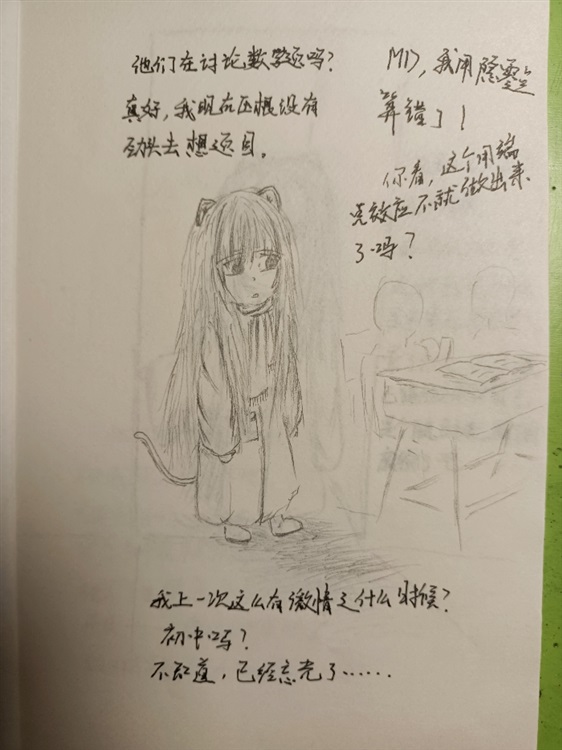 他们在讨论数学题吗?
真好,我现在压根没有
劲头去想题目。
MD,我用隐零点
算错了!
你看,这个用端
点效应不就做出来
了吗?
我上一次这么有激情是什么时候?
初中吗?
不知道,已经忘光了……